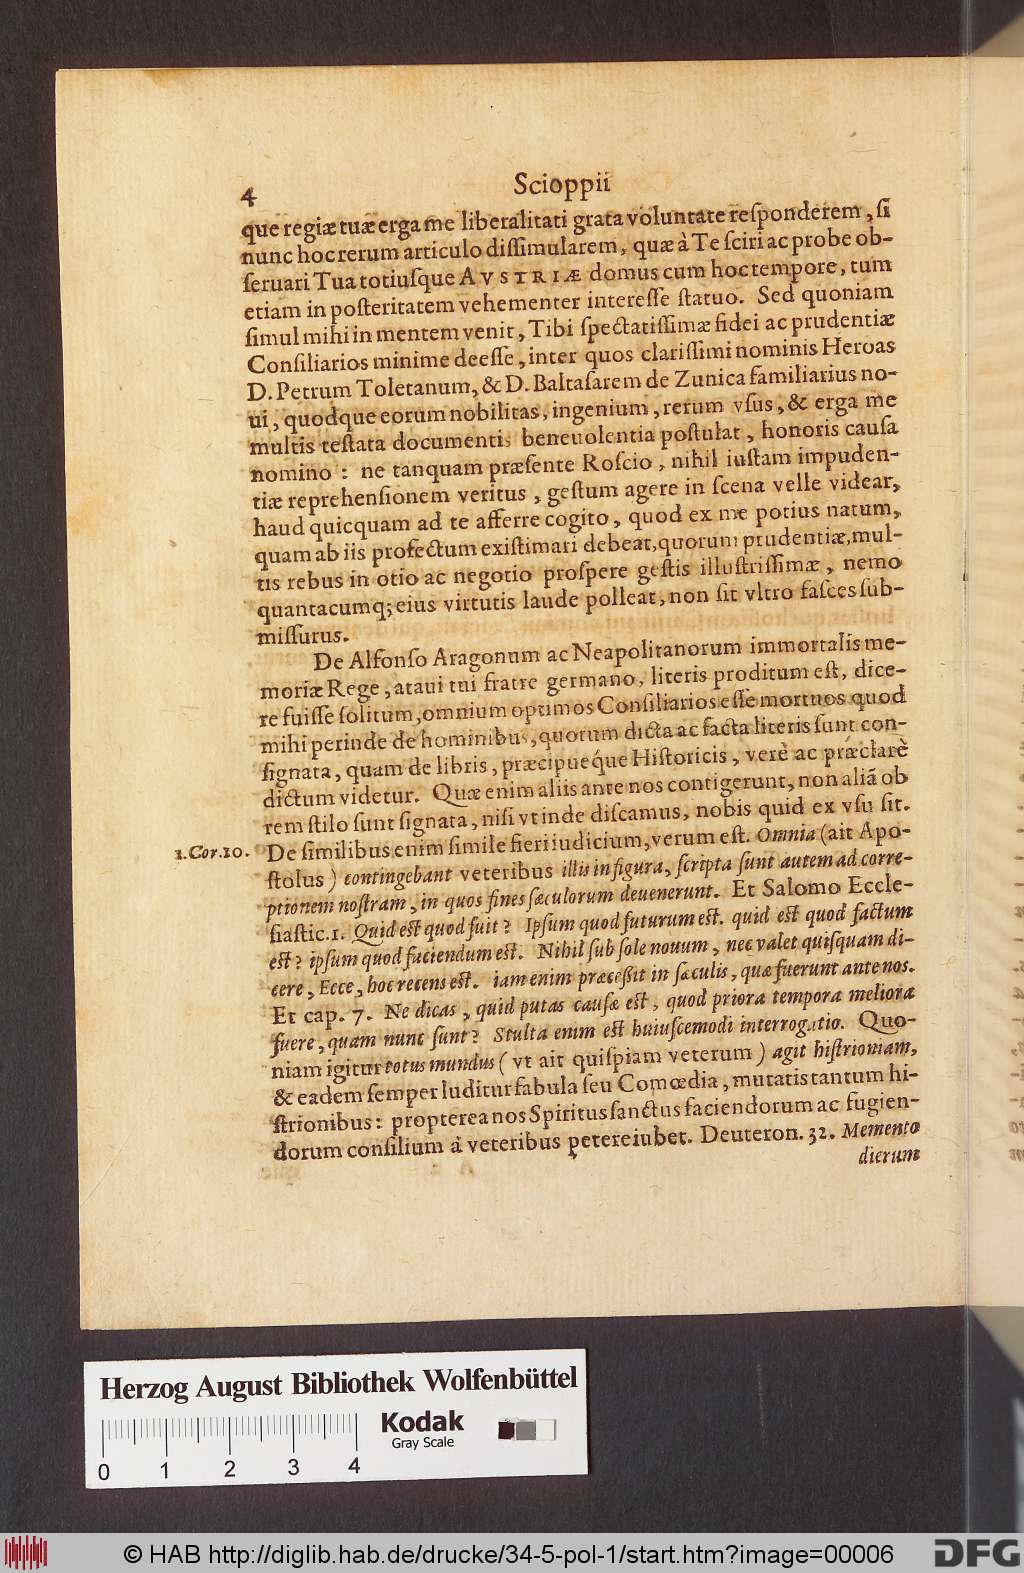 4 Scioppii
que regiæ tuæ erga me liberalitati grata voluntate reſponderem, ſi
nunc hoc rerum articulo diſſimularem, quæ à Te ſciri ac probe ob-
ſeruari Tua totiuſque AVSTRIÆ domus cum hoc tempore, tum
etiam in poſteritatem vehementer intereſſe ſtatuo. Sed quoniam
ſimul mihi in mentem venit, Tibi ſpectatiſſimæ fidei ac prudentiæ
Conſiliarios minime deeſſe, inter quos clariſſimi nominis Heroas
D. Petrum Toletanum, & D. Baltaſarem de Zunica familiarius no-
ui, quodque eorum nobilitas, ingenium, rerum vſus, & erga me
multis teſtata documentis beneuolentia poſtulat, honoris cauſa
nomino: ne tanquam præſente Roſcio, nihil iuſtam impuden-
tiæ reprehenſionem veritus, geſtum agere in ſcena velle videar,
haud quicquam ad te afferre cogito, quod ex me potius natum,
quam ab iis profectum exiſtimari debeat, quorum prudentiæ, mul-
tis rebus in otio ac negotio proſpere geſtis illuſtriſſimæ, nemo
quantacumq; eius virtutis laude polleat, non ſit vltro faſces ſub-
miſſurus.
De Alfonſo Aragonum ac Neapolitanorum immortalis me-
moriæ Rege, ataui tui fratre germano, literis proditum eſt, dice-
re fuiſſe ſolitum, omnium optimos Conſiliarios eſſe mortuos quod
mihi perinde de hominibus, quorum dicta ac facta literis ſunt con-
ſignata, quam de libris, præcipueq́ue Hiſtoricis, verè ac præclarè
dictum videtur. Quæ enim aliis ante nos contigerunt, non aliã ob
rem ſtilo ſunt ſignata, niſi vt inde diſcamus, nobis quid ex vſu ſit.
1.Cor.10. De ſimilibus enim ſimile fieri iudicium, verum eſt. Omnia (ait Apo-
ſtolus) contingebant veteribus illis in figura, ſcripta ſunt autem ad corre-
ptionem noſtram, in quos fines ſæculorum deuenerunt. Et Salomo Eccle-
ſiaſtic. 1. Quid eſt quod fuit? Ipſum quod futurum eſt. quid eſt quod factum
eſt? ipſum quod faciendum eſt. Nihil ſub ſole nouum, nec valet quiſquam di-
cere, Ecce, hoc recens eſt. iam enim præceßit in ſæculis, quæ fuerunt ante nos.
Et cap. 7. Ne dicas, quid putas cauſæ eſt, quod priora tempora meliora
fuere, quam nunc ſunt? Stulta enim eſt huiuſcemodi interrogatio. Quo-
niam igitur totus mundus (vt ait quiſpiam veterum) agit hiſtrioniam,
& eadem ſemper luditur fabula ſeu Comœdia, mutatis tantum hi-
ſtrionibus: propterea nos Spiritus ſanctus faciendorum ac fugien-
dorum conſilium à veteribus petere iubet. Deuteron. 32. Memento
dierum
Herzog August Bibliothek Wolfenbüttel
Kodak
Gray Scale
0 1 2 3 4
© HAB http://diglib.hab.de/drucke/34-5-pol-1/start.htm?image=00006
DFG